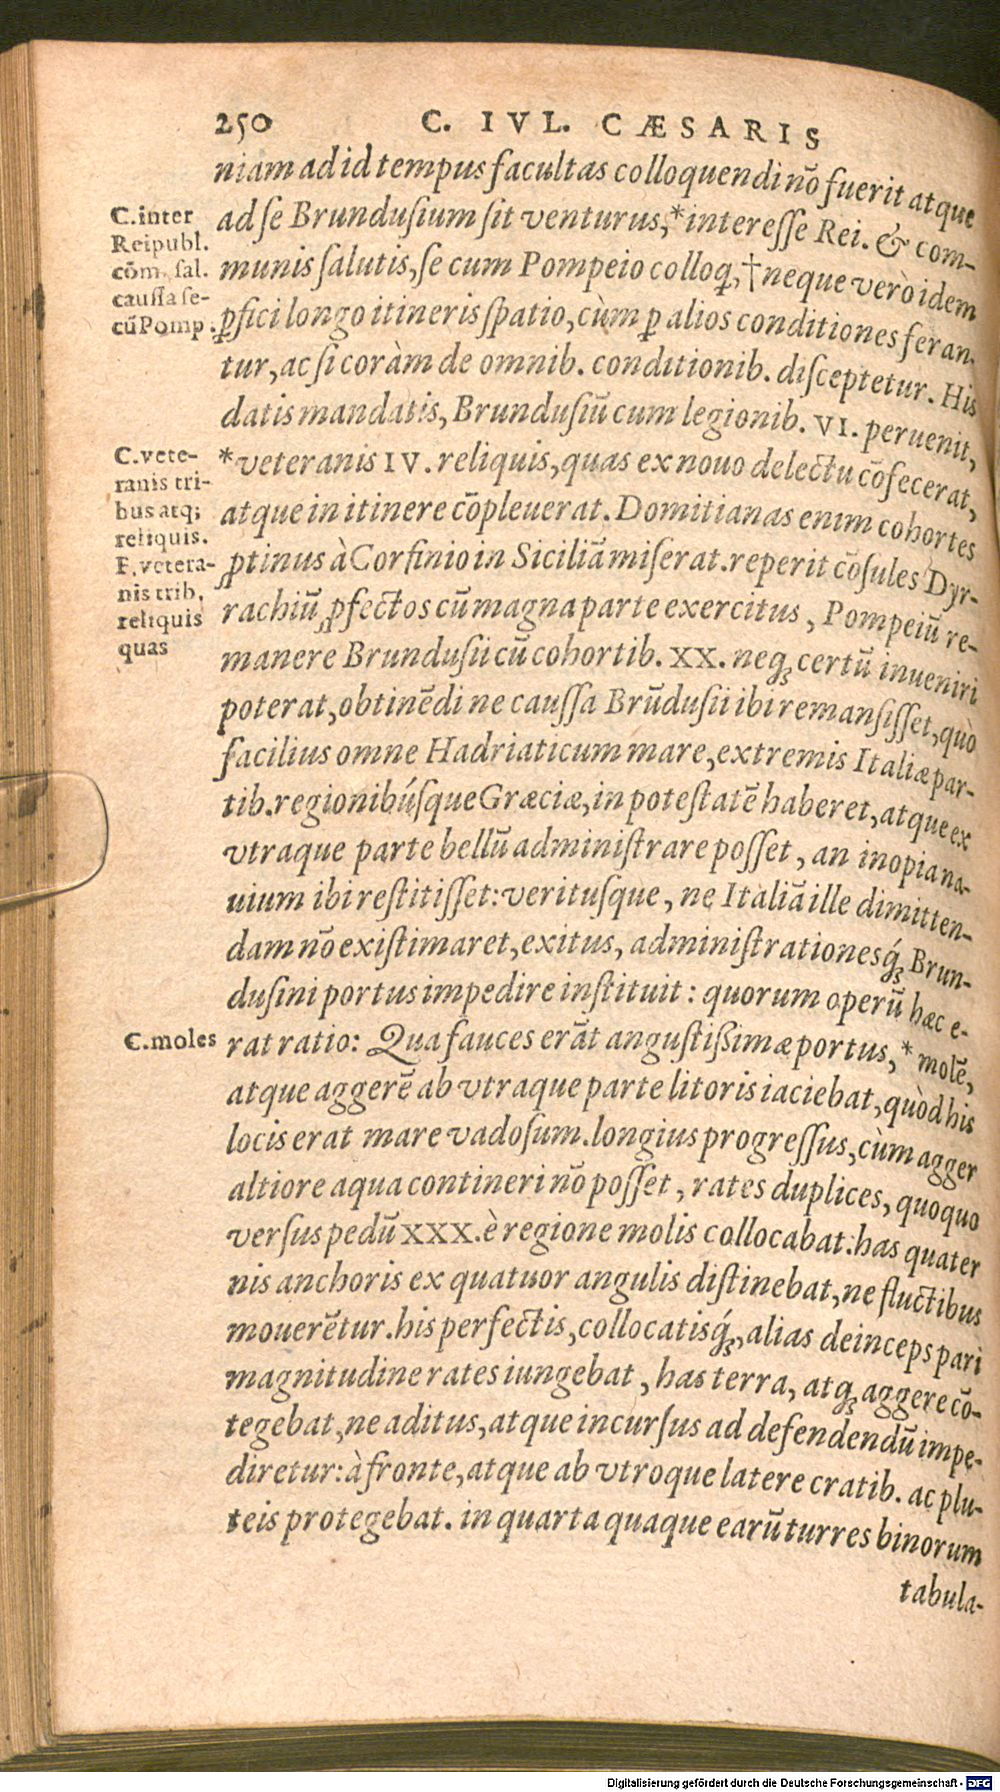 250 C. IVL. CÆSARIS
niam ad id tempus facultas colloquendi nō fuerit atque
ad se Brundusium sit venturus, *interesse Rei. & com-
munis salutis, se cum Pompeio colloq́, †neque verò idem
ꝑfici longo itineris spatio, cùm ꝑ alios conditiones feran-
tur, ac si coràm de omnib. conditionib. disceptetur. His
datis mandatis, Brundusiū cum legionib. VI. peruenit,
*veteranis IV. reliquis, quas ex nouo delectu cōfecerat,
atque in itinere cōpleuerat. Domitianas enim cohortes
ꝓtinus à Corfinio in Siciliā miserat. reperit cōsules Dyr-
rachiū ꝓfectos cū magna parte exercitus, Pompeiū re-
manere Brundusii cū cohortib. XX. neq; certū inueniri
poterat, obtinēdi ne caussa Brūdusii ibi remansisset, quò
facilius omne Hadriaticum mare, extremis Italiæ par-
tib. regionibúsque Græciæ, in potestatē haberet, atque ex
vtraque parte bellū administrare posset, an inopia na-
uium ibi restitisset: veritusque, ne Italiā ille dimitten-
dam nō existimaret, exitus, administrationesq́; Brun-
dusini portus impedire instituit: quorum operū hæc e-
rat ratio: Qua fauces erāt angustißimæ portus, *molē,
atque aggerē ab vtraque parte litoris iaciebat, quòd his
locis erat mare vadosum. longius progressus, cùm agger
altiore aqua contineri nō posset, rates duplices, quoquo
versus pedū XXX. è regione molis collocabat. has quater
nis anchoris ex quatuor angulis distinebat, ne fluctibus
mouerētur. his perfectis, collocatisq́;, alias deinceps pari
magnitudine rates iungebat, has terra, atq; aggere cō-
tegebat, ne aditus, atque incursus ad defendendū impe-
diretur: à fronte, atque ab vtroque latere cratib. ac plu-
teis protegebat. in quarta quaque earū turres binorum
tabula-
C. inter
Reipubl.
cōm. sal.
caussa se-
cū Pomp.
C. vete-
ranis tri-
bus atq;
reliquis.
F. vetera-
nis trib.
reliquis
quas
C. moles
Digitalisierung gefördert durch die Deutsche Forschungsgemeinschaft - DFG